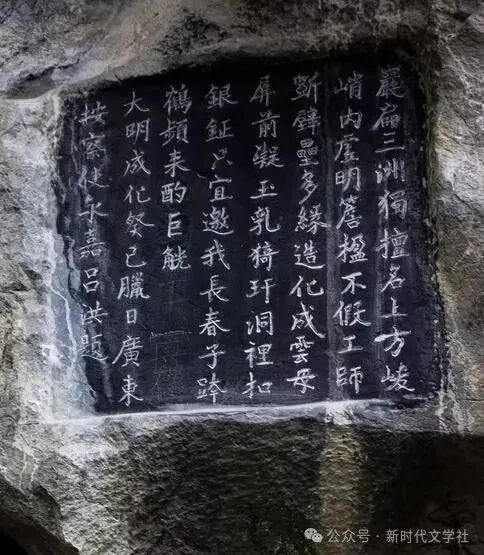 巖扁三洲獨擅名上方峻
峭內虛明簷楹不假工師
斲鐸壘多緣造化成雲母
屏前凝玉乳猗玕洞裡扣
銀鉦只宜邀我長春子跨
鶴頻來酌巨觥
大明成化癸巳臘日廣東
按察使永嘉呂洪題
公众号·新时代文学社